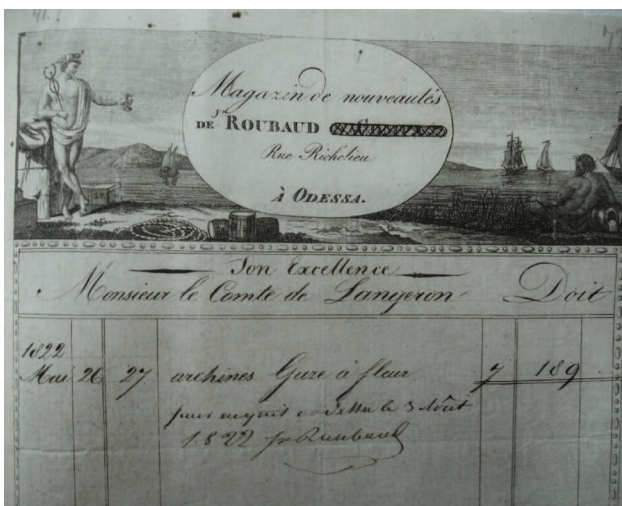 41.
Magazin de nouveautés
DE Jⁿ ROUBAUD
Rue Richelieu
À ODESSA.
Son Excellence
Monsieur le Comte de Langeron Doit
1822
Mai 26 27 archines Gaze à fleur 7 189
pour acquit odessa le 3 Août
1822 Roubaud